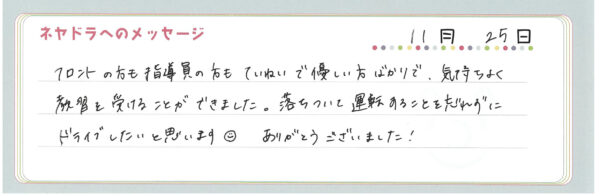 ネヤドラへのメッセージ
11月 25日
フロントの方も指導員の方もていねいで優しい方ばかりで、気持ちよく
教習を受けることができました。落ちついて運転することを忘れずに
ドライブしたいと思います☺ ありがとうございました!